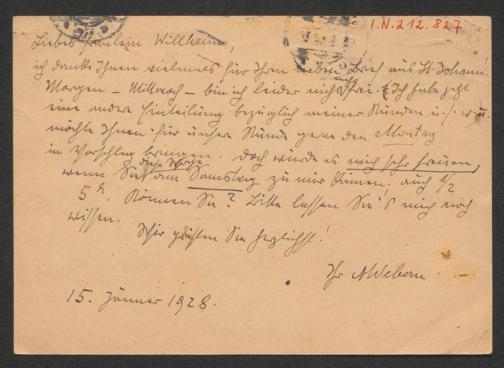 I.N. 212.827
Liebes Fräulein Willheim,
ich danke Ihnen vielmals für Ihren lieben Brief aus St. Johann.
Morgen – Mittwoch – bin ich leider nicht frei. Ich habe jetzt
eine andere Einteilung bezüglich meiner Stunden u. s. w. u.
möchte Ihnen für unsere Stunde gerne den Montag
in Vorschlag bringen. Doch würde es mich sehr freuen,
wenn Sie diese Woche am Samstag zu mir kämen. auch ½
5h. Können Sie? Bitte lassen Sie's mich noch
wissen.
Wir grüßen Sie herzlichst!
Ihr AWebern
15. Jänner 1928.